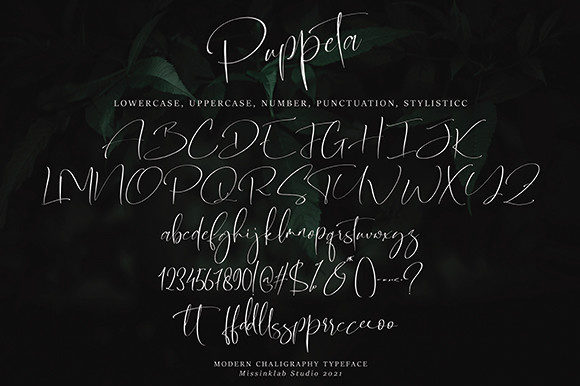 Puppeta
LOWERCASE, UPPERCASE, NUMBER, PUNCTUATION, STYLISTICC
ABCDEFGHIJK
LMNOPQRSTUVWXYZ
abcdefghijklmnopqrstuvwxyz
1234567890!@#$%&*()-+=.,?
tt ffddllsspprrcceeoo
MODERN CHALIGRAPHY TYPEFACE
Missinklab Studio 2021